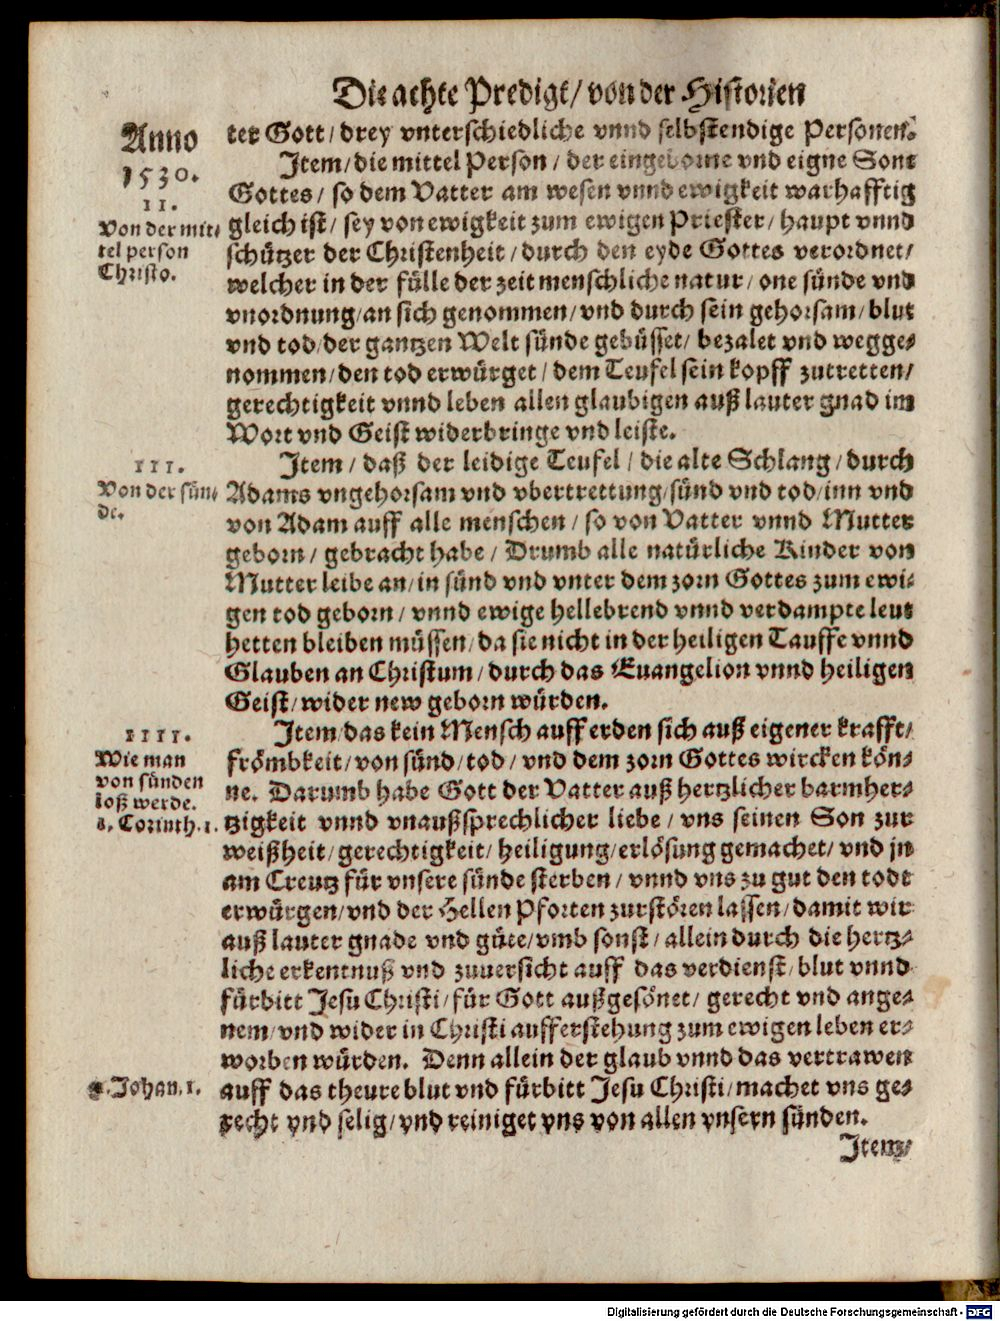 Die achte Predigt/ von der Historien
Anno
1530.
ter Gott/ drey vnterschiedliche vnnd selbstendige Personen.
Item/ die mittel Person/ der eingeborne vnd eigne Sone
Gottes/ so dem Vatter am wesen vnnd ewigkeit warhafftig
II.
Von der mit-
tel person
Christo.
gleich ist/ sey von ewigkeit zum ewigen Priester/ haupt vnnd
schützer der Christenheit/ durch den eyde Gottes verordnet/
welcher in der fülle der zeit menschliche natur/ one sünde vnd
vnordnung/ an sich genommen/ vnd durch sein gehorsam/ blut
vnd tod/ der gantzen Welt sünde gebüsset/ bezalet vnd wegge-
nommen/ den tod erwürget/ dem Teufel sein kopff zutretten/
gerechtigkeit vnnd leben allen glaubigen auß lauter gnad im
Wort vnd Geist widerbringe vnd leiste.
III.
Von der sün-
de.
Item/ daß der leidige Teufel/ die alte Schlang/ durch
Adams vngehorsam vnd vbertrettung/ sünd vnd tod/ inn vnd
von Adam auff alle menschen/ so von Vatter vnnd Mutter
geborn/ gebracht habe/ Drumb alle natürliche Kinder von
Mutter leibe an/ in sünd vnd vnter dem zorn Gottes zum ewi-
gen tod geborn/ vnnd ewige hellebrend vnnd verdampte leut
hetten bleiben müssen/ da sie nicht in der heiligen Tauffe vnnd
Glauben an Christum/ durch das Euangelion vnnd heiligen
Geist/ wider new geborn würden.
IIII.
Wie man
von sünden
loß werde.
1. Corinth. 1.
Item/ das kein Mensch auff erden sich auß eigener krafft/
frömbkeit/ von sünd/ tod/ vnd dem zorn Gottes wircken kön-
ne. Darumb habe Gott der Vatter auß hertzlicher barmher-
tzigkeit vnnd vnaußsprechlicher liebe/ vns seinen Son zur
weißheit/ gerechtigkeit/ heiligung/ erlösung gemachet/ vnd jn
am Creutz für vnsere sünde sterben/ vnnd vns zu gut den todt
erwürgen/ vnd der Hellen Pforten zurstören lassen/ damit wir
auß lauter gnade vnd güte/ vmb sonst/ allein durch die hertz-
liche erkentnuß vnd zuuersicht auff das verdienst/ blut vnnd
fürbitt Jesu Christi/ für Gott außgesönet/ gerecht vnd ange-
nem/ vnd wider in Christi aufferstehung zum ewigen leben er-
worben würden. Denn allein der glaub vnnd das vertrawen
Johan. 1.
auff das theure blut vnd fürbitt Jesu Christi/ machet vns ge-
recht vnd selig/ vnd reiniget vns von allen vnsern sünden.
Item/
Digitalisierung gefördert durch die Deutsche Forschungsgemeinschaft - DFG